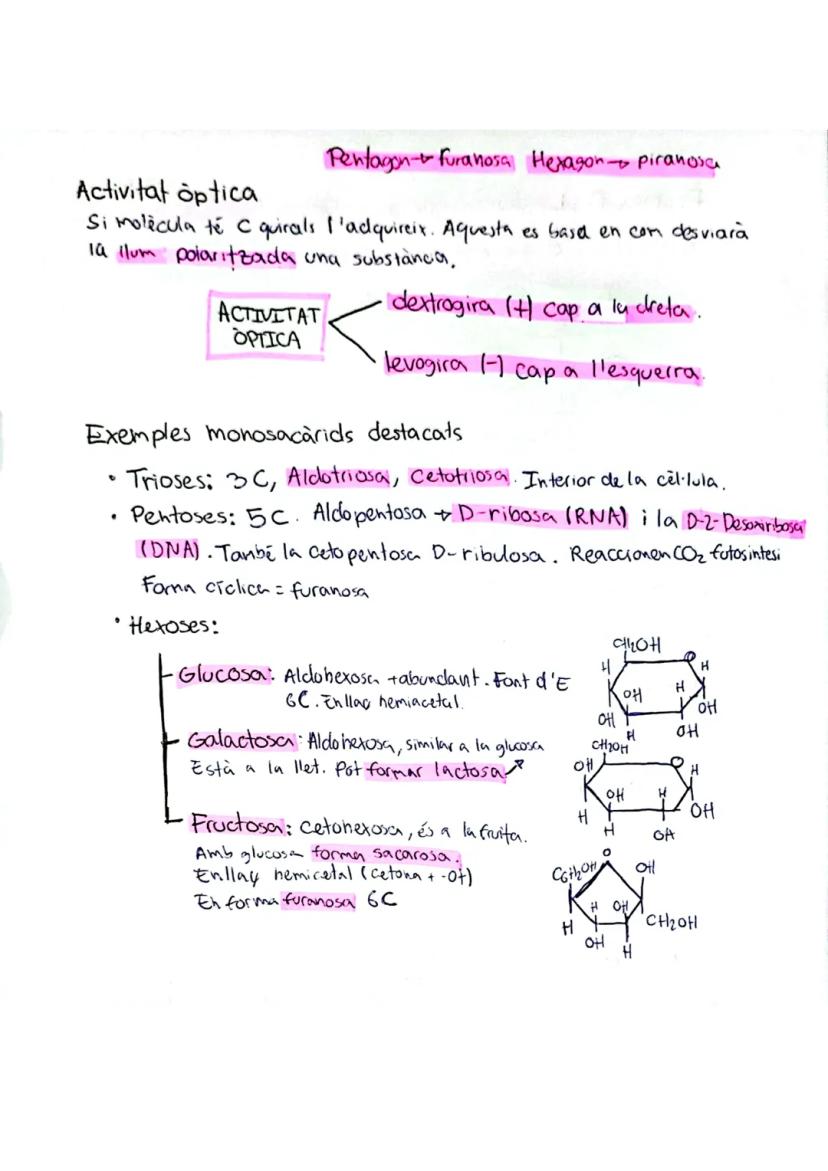 Pentagon → furanosa Hexagon → piranosa
Activitat òptica
Si molècula té C quirals l'adquireix. Aquesta es basa en com desviarà
la llum polaritzada una substància.
ACTIVITAT
ÒPTICA
dextrogira (+) cap a la dreta.
levogira (-) cap a l'esquerra.
Exemples monosacàrids destacats
• Trioses: 3C, Aldotriosa, Cetotriosa. Interior de la cèl·lula.
• Pentoses: 5C. Aldopentosa → D-ribosa (RNA) i la D-2-Desoxiribosa
(DNA). També la cetopentosa D-ribulosa. Reaccionen CO2 fotosintesi
Forma cíclica = furanosa
• Hexoses:
Glucosa: Aldohexosa +abundant. Font d'E
6C. Enllaç hemiacetal.
CH2OH
O
H
H
OH
H
OH
OH
H
OH
Galactosa: Aldohexosa, similar a la glucosa
Està a la llet. Pot formar lactosa
CH2OH
OH
O
H
OH
H
H
OH
H
OA
Fructosa: cetohexosa, és a la fruita.
Amb glucosa forma sacarosa.
Enllaç hemicetal (cetona + -OH)
En forma furanosa 6C
O
C6H2OH
OH
H
OH
H
CH2OH
OH
H